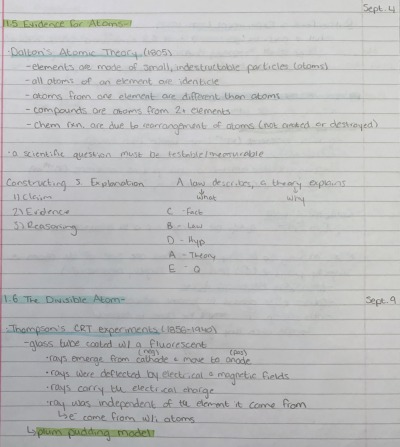 Sept. 4
1.5 Evidence for Atoms-
·Dalton's Atomic Theory, (1805)
-elements are made of small, indestructable particles (atoms)
-all atoms of an element are identicle
-atoms from one element are different than atoms
-compounds are atoms from 2+ elements
-chem rxn. are due to rearrangement of atoms (not created or destroyed)
·a scientific question must be testable/measurable
Constructing Explanation A law describes, a theory explains
1) Claim what why
2) Evidence C - Fact
3) Reasoning B - Law
D - Hyp
A - Theory
E - Q
1.6 The Divisible Atom- Sept. 9
·Thompson's CRT experiments (1856-1940)
-glass tube coated w/ a fluorescent
(neg) (pos)
·rays emerge from cathode + move to anode
·rays were deflected by electrical + magnetic fields
·rays carry the electrical charge
·ray was independent of the element it came from
↳e⁻ come from w/i atoms
↳plum pudding model